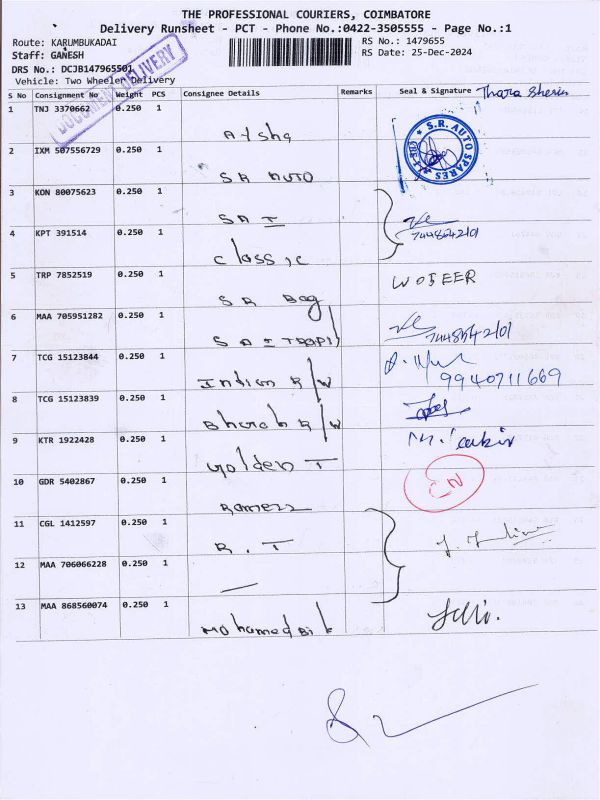 THE PROFESSIONAL COURIERS, COIMBATORE
Delivery Runsheet - PCT - Phone No.:0422-3505555 - Page No.:1
Route: KARUMBUKADAI RS No.: 1479655
Staff: GANESH RS Date: 25-Dec-2024
DRS No.: DCJB147965501
Vehicle: Two Wheeler Delivery
DOCUMENT DELIVERY
S No Consignment No Weight PCS Consignee Details Remarks Seal & Signature Thara Sherin
1 TNJ 3370662 0.250 1 Aysha
2 IXM 507556729 0.250 1 SR AUTO S.R. AUTO SPARES
3 KON 80075623 0.250 1 SAI
4 KPT 391514 0.250 1 classic 7448542101
5 TRP 7852519 0.250 1 SR Bag WOJEER
6 MAA 705951282 0.250 1 SAI 7448542101
7 TCG 15123844 0.250 1 Indian R/W 9940711669
8 TCG 15123839 0.250 1 Bharath R/W
9 KTR 1922428 0.250 1 Golden T
10 GDR 5402867 0.250 1 Ramezz
11 CGL 1412597 0.250 1 R.T
12 MAA 706066228 0.250 1 —
13 MAA 868560074 0.250 1